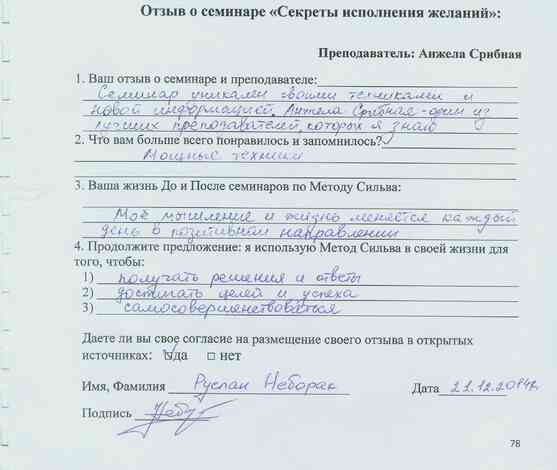 Отзыв о семинаре «Секреты исполнения желаний»:
Преподаватель: Анжела Срибная
1. Ваш отзыв о семинаре и преподавателе:
Семинар уникален своими техниками и
новой информацией. Анжела Срибная - один из
лучших преподавателей, которых я знаю
2. Что вам больше всего понравилось и запомнилось?
Мощные техники
3. Ваша жизнь До и После семинаров по Методу Сильва:
Моё мышление и жизнь меняется каждый
день в позитивном направлении
4. Продолжите предложение: я использую Метод Сильва в своей жизни для
того, чтобы:
1) получать решения и ответы
2) достигать целей и успеха
3) самосовершенствоваться
Даете ли вы свое согласие на размещение своего отзыва в открытых
источниках: да нет
Имя, Фамилия Руслан Неборак Дата 21.12.2014г.
Подпись
78